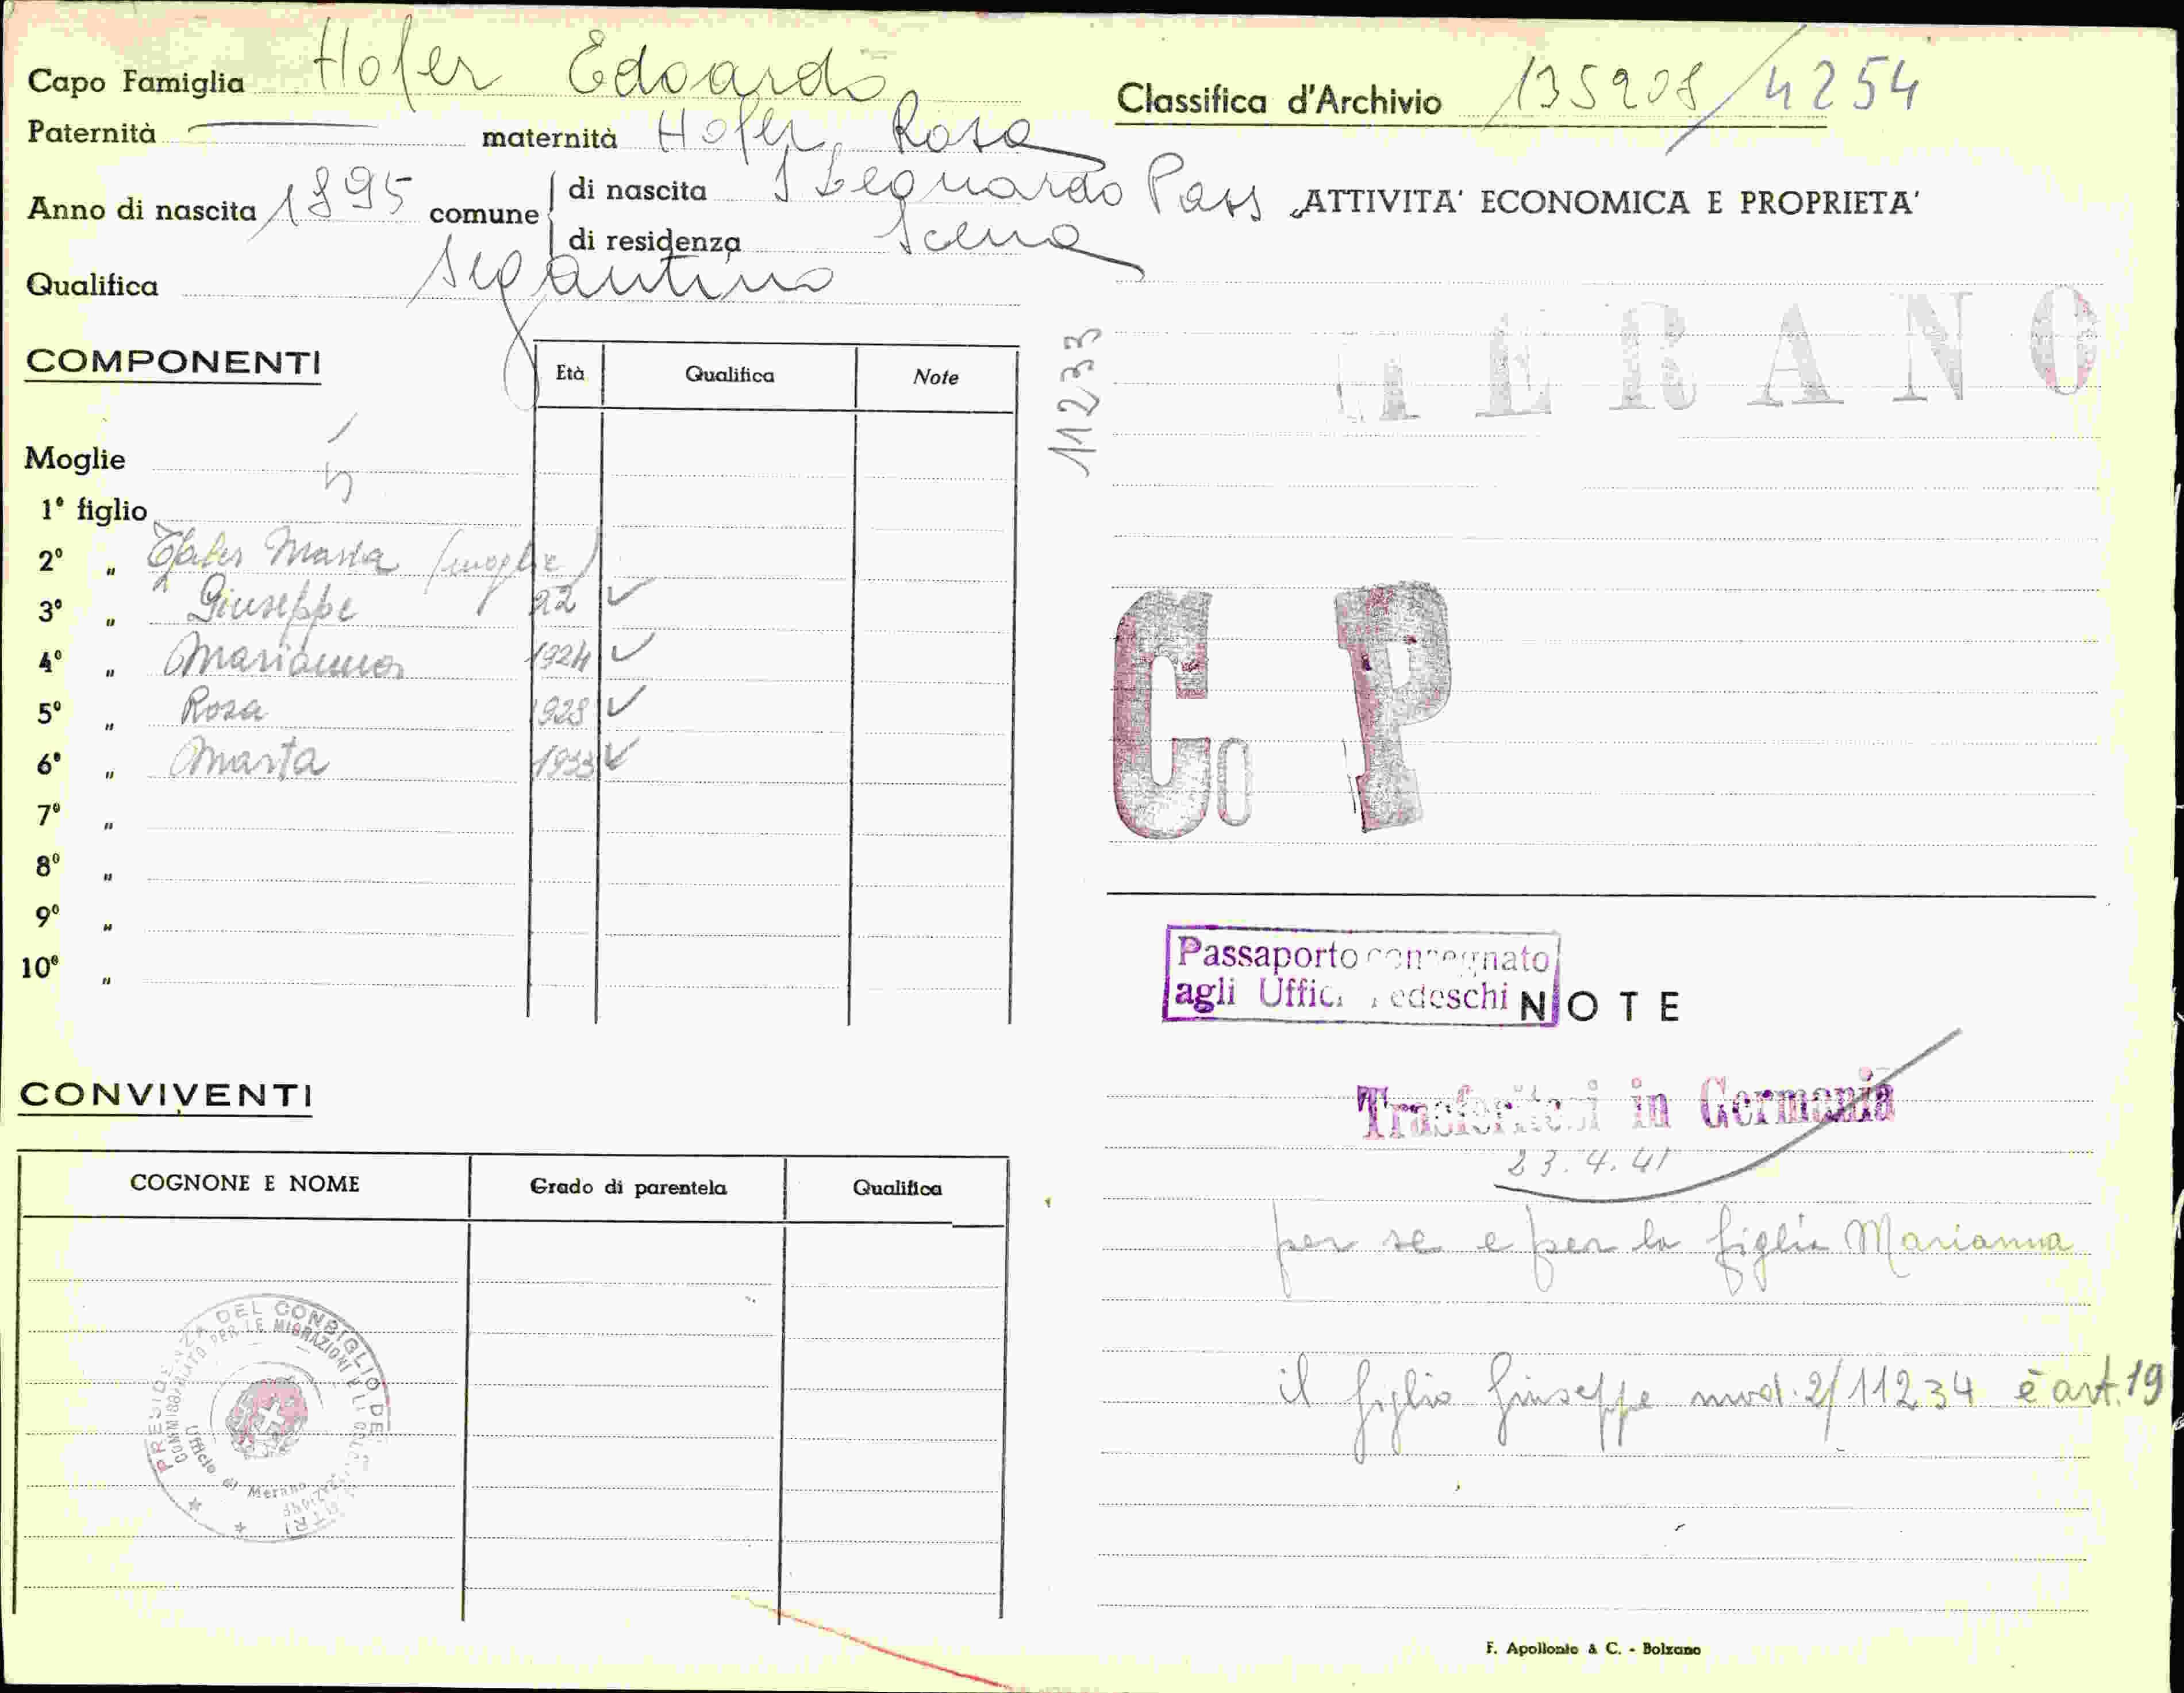 Capo Famiglia Hofer Edoardo
Paternità maternità Hofer Rosa
Anno di nascita 1895 comune di nascita S Leonardo Pass
di residenza Scena
Qualifica Segantino
COMPONENTI
Età Qualifica Note
Moglie
5
1º figlio
2º " Maria (moglie)
3º " Giuseppe 22 ✓
4º " Marianna 1924 ✓
5º " Rosa 1928 ✓
6º " Marta 1933 ✓
7º "
8º "
9º "
10º "
CONVIVENTI
COGNONE E NOME Grado di parentela Qualifica
PRESIDENZA DEL CONSIGLIO DEI MINISTRI
COMMISSARIATO PER LE MIGRAZIONI E LE
Ufficio di Merano
Classifica d'Archivio 135908/4254
ATTIVITA' ECONOMICA E PROPRIETA'
11233
MERANO
Co P
Passaporto consegnato
agli Uffici Tedeschi
NOTE
Trasferitosi in Germania
23.4.41
per se e per la figlia Marianna
il figlio Giuseppe mod. 2/11234 è art. 19
F. Apollonio & C. - Bolzano